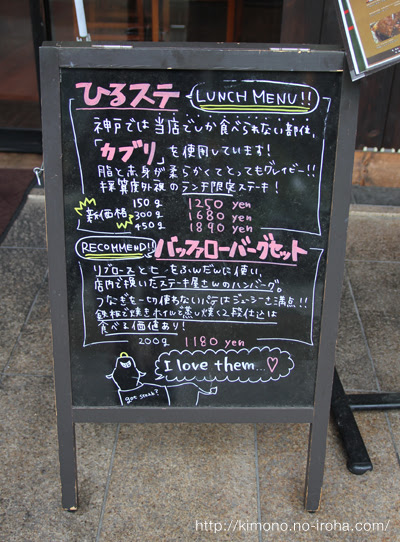 ひるステ LUNCH MENU!!
神戸では当店でしか食べられない部位、
「カブリ」を使用しています!
脂と赤身が柔らかくてとってもグレイビー!!
採算度外視のランチ限定ステーキ!
150g 1250 yen
新価格 300g 1680 yen
450g 1890 yen
RECOMMEND!! バッファローバーグセット
リブロースとヒレをふんだんに使い、
店内で挽いたステーキ屋さんのハンバーグ。
つなぎを一切使わないパテはジューシーさ満点!!
鉄板で焼きホイルで蒸し焼く2段仕込は
食べる価値あり!
200g 1180 yen
I love them...♡
got steak?
http://kimono.no-iroha.com/